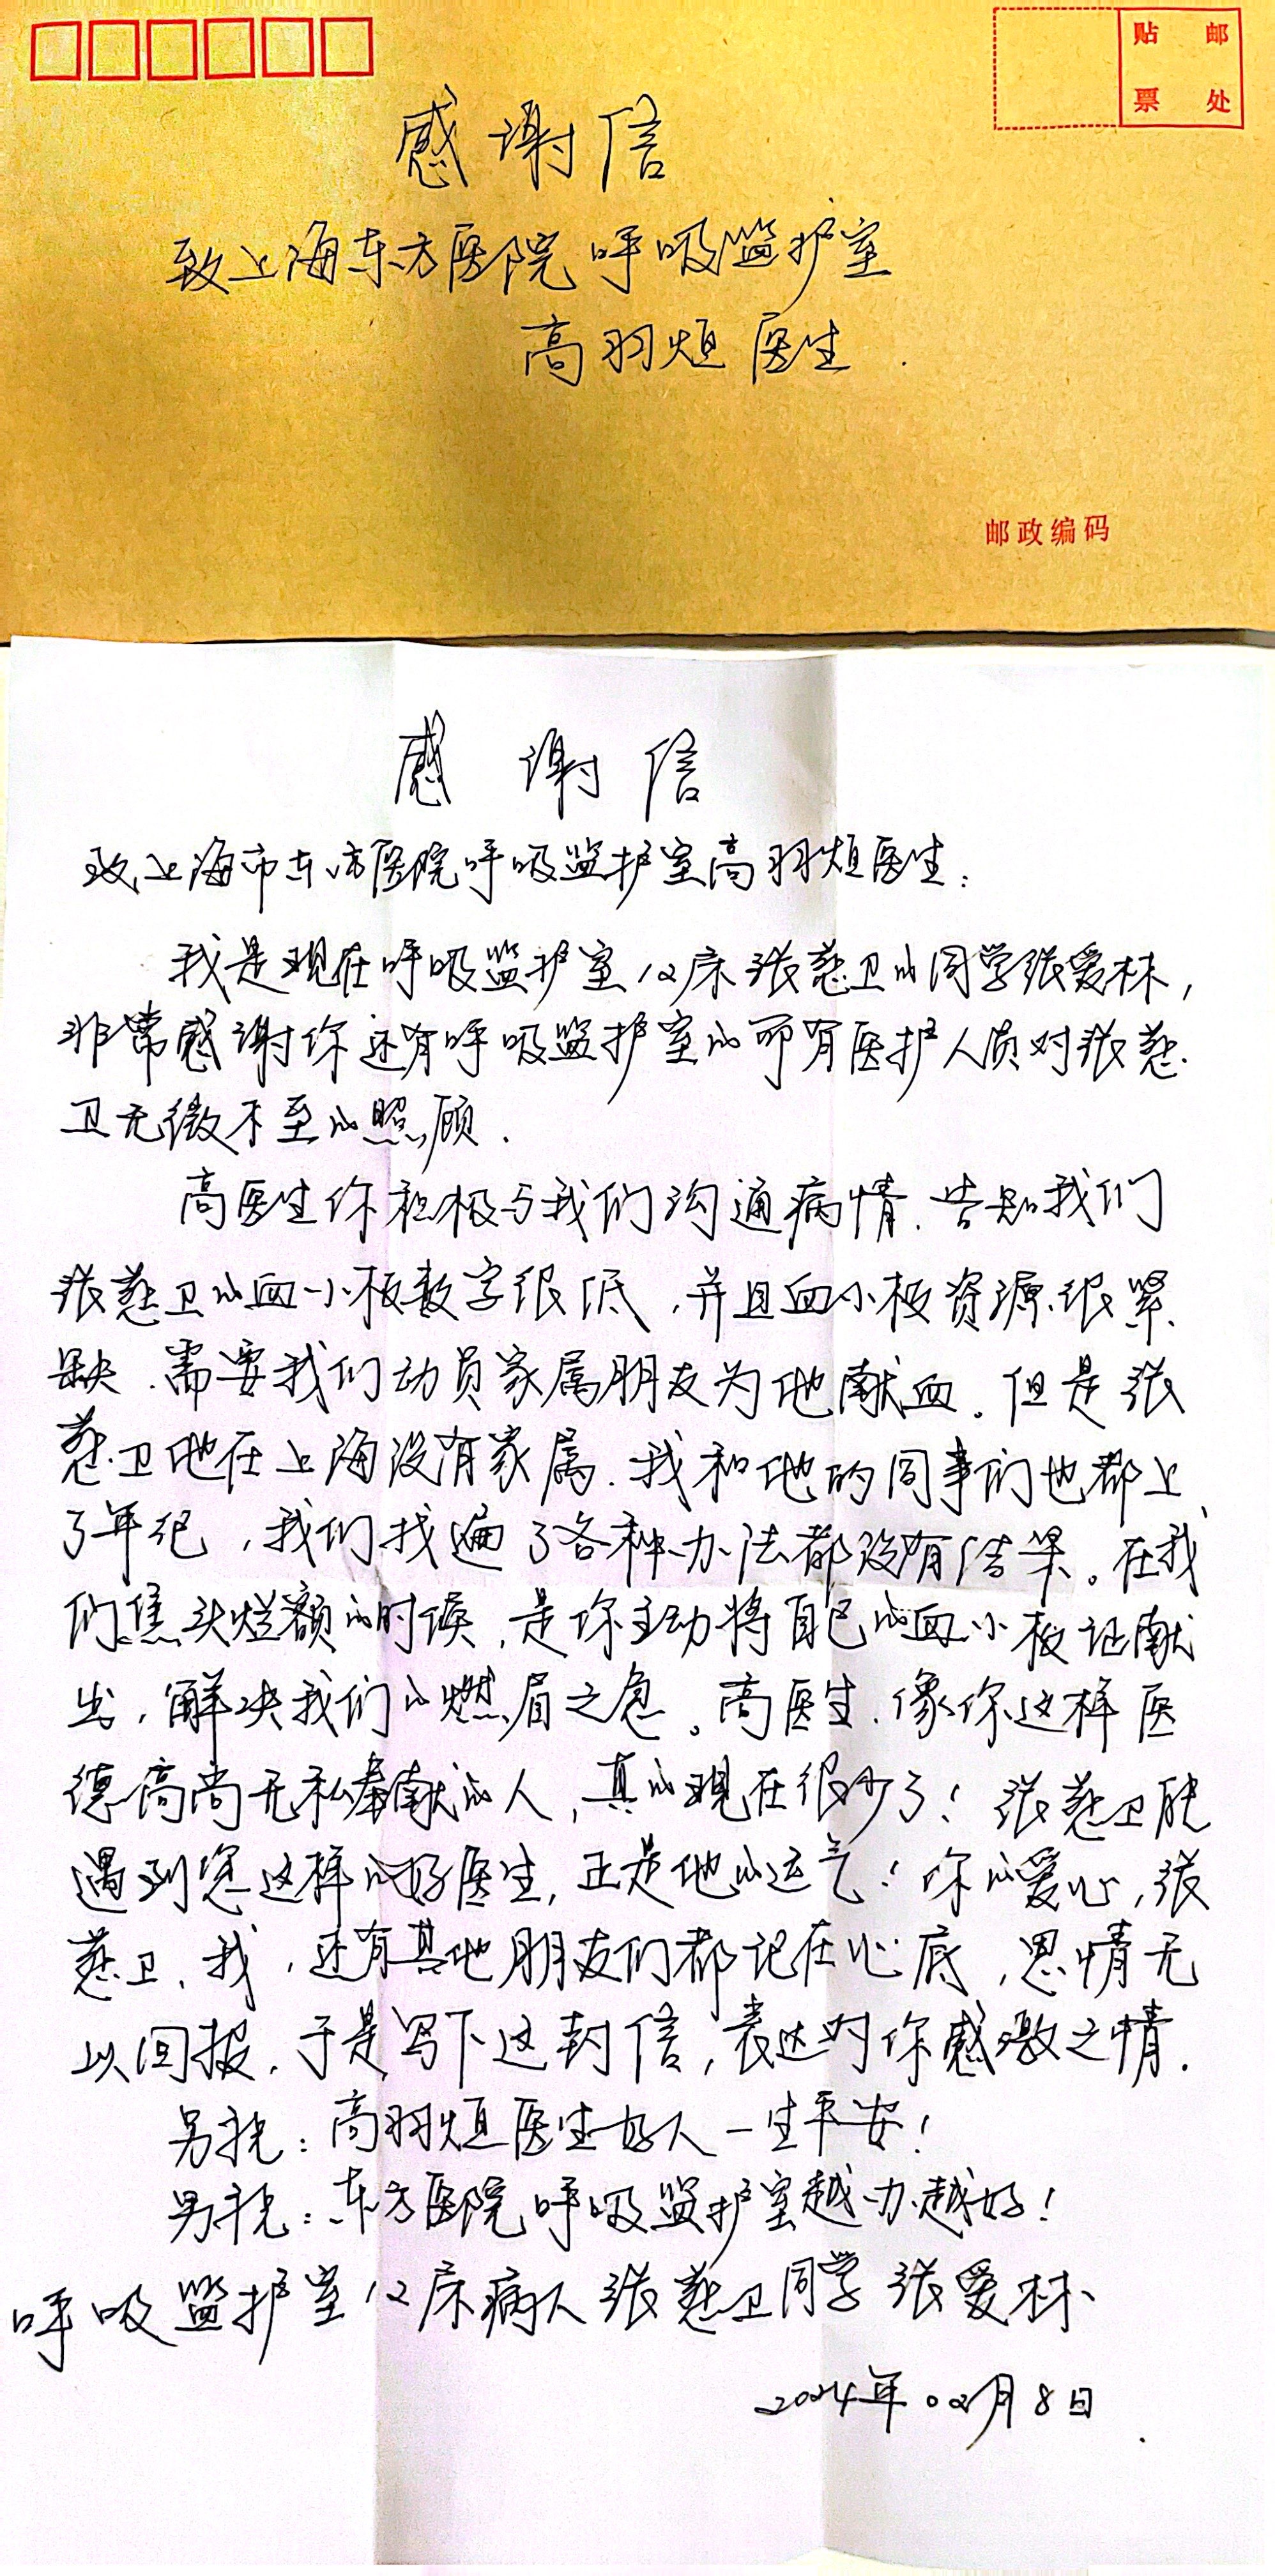 贴 邮
票 处
感谢信
致上海东方医院呼吸监护室
高羽烜医生.
邮政编码
感谢信
致上海市东方医院呼吸监护室高羽烜医生:
我是现在呼吸监护室12床张慰卫的同学张爱林,
非常感谢你还有呼吸监护室的所有医护人员对张慰
卫无微不至的照顾.
高医生你积极与我们沟通病情.告知我们
张慰卫的血小板数字很低,并且血小板资源很紧
缺.需要我们动员家属朋友为他献血。但是张
慰卫他在上海没有家属.我和他的同事们也都上
了年纪,我们找遍了各种办法都没有结果。在我
们焦头烂额的时候,是你主动将自己的血小板证献
出,解决我们的燃眉之急。高医生.像你这样医
德高尚无私奉献的人,真的现在很少了!张慰卫能
遇到您这样的好医生,正是他的运气!你的爱心,张
慰卫、我,还有其他朋友们都记在心底,恩情无
以回报.于是写下这封信,表达对你感激之情.
另祝:高羽烜医生好人一生平安!
另祝:东方医院呼吸监护室越办越好!
呼吸监护室12床病人张慰卫同学张爱林
2024年02月8日.